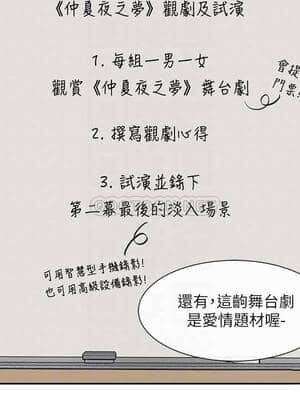 《仲夏夜之夢》觀劇及試演
1. 每組一男一女
觀賞《仲夏夜之夢》舞台劇
會提
門票!
2. 撰寫觀劇心得
3. 試演並錄下
第二幕最後的淡入場景
可用智慧型手機錄影!
也可用高級設備錄影!
還有,這齣舞台劇
是愛情題材喔-